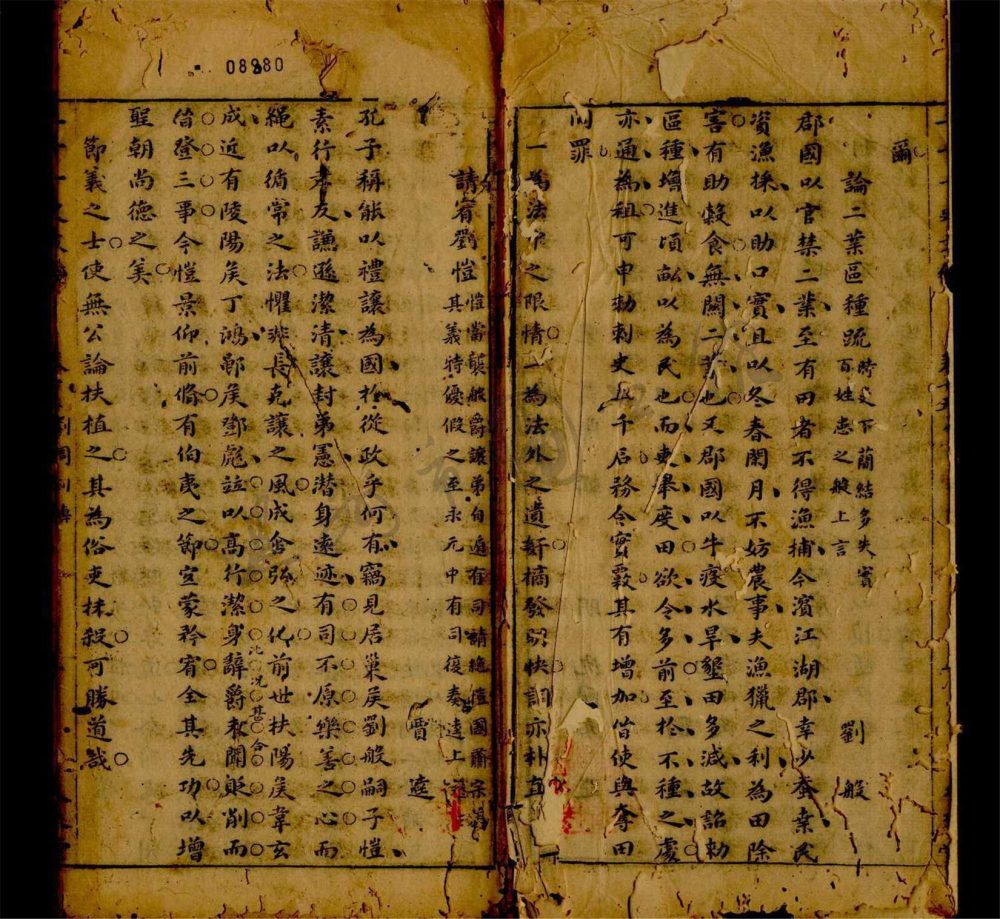 08880
爾
論二業區種䟽
時吏下蘭結多失實
百姓患之般上言
劉般
郡國以官禁二業至有田者不得漁捕今濱江湖郡率少蠶桒民
資漁採以助口實且以冬春閑月不妨農事夫漁獵之利為田除
害有助穀食無關二業也又郡國以牛疫水旱墾田多減故詔勅
區種增進頃畝以為民也而吏舉度田欲令多前至於不種之處
亦通為租可申勅刺史二千石務令實覈其有增加皆使與奪田
同罪
一為法中之限情一為法外之遺奸摘發明快詞亦朴直
請宥劉愷
愷當襲般爵讓弟自遁有司請絕愷國肅宗美
其義特優假之至永元中有司復奏逵上疏
賈逵
孔子稱能以禮讓為國於從政乎何有竊見居巢侯劉般嗣子愷
素行孝友謙遜潔清讓封弟憲潛身遠迹有司不原樂善之心而
繩以循常之法懼非長克讓之風成含弘之化前世扶陽侯韋玄
成近有陵陽侯丁鴻鄳侯鄧彪竝以高行潔身辭爵未聞貶削而
比况甚合
皆登三事今愷景仰前脩有伯夷之節宜蒙矜宥全其先功以增
聖朝尚德之美
節義之士使無公論扶植之其為俗吏抹殺可勝道哉